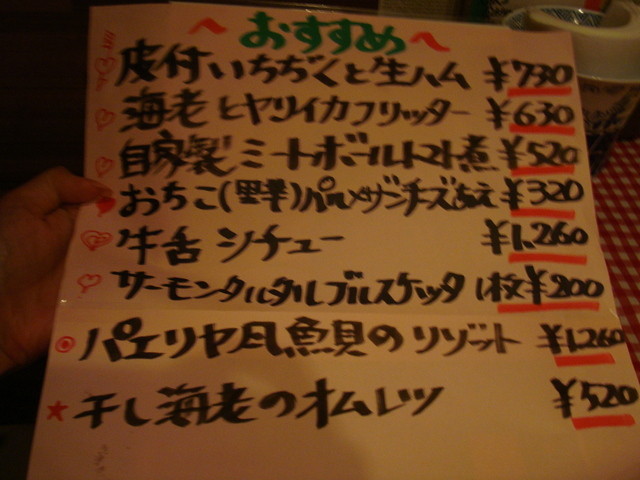 おすすめ
皮付いちぢくと生ハム ¥730
海老とヤリイカフリッター ¥630
自家製ミートボールトマト煮 ¥520
おちこ(野羊)パルメザンチーズあえ ¥320
牛舌シチュー ¥1,260
サーモンタルタルブルスケッタ 1枚¥200
パエリヤ風魚貝のリゾット ¥1,260
干し海老のオムレツ ¥520